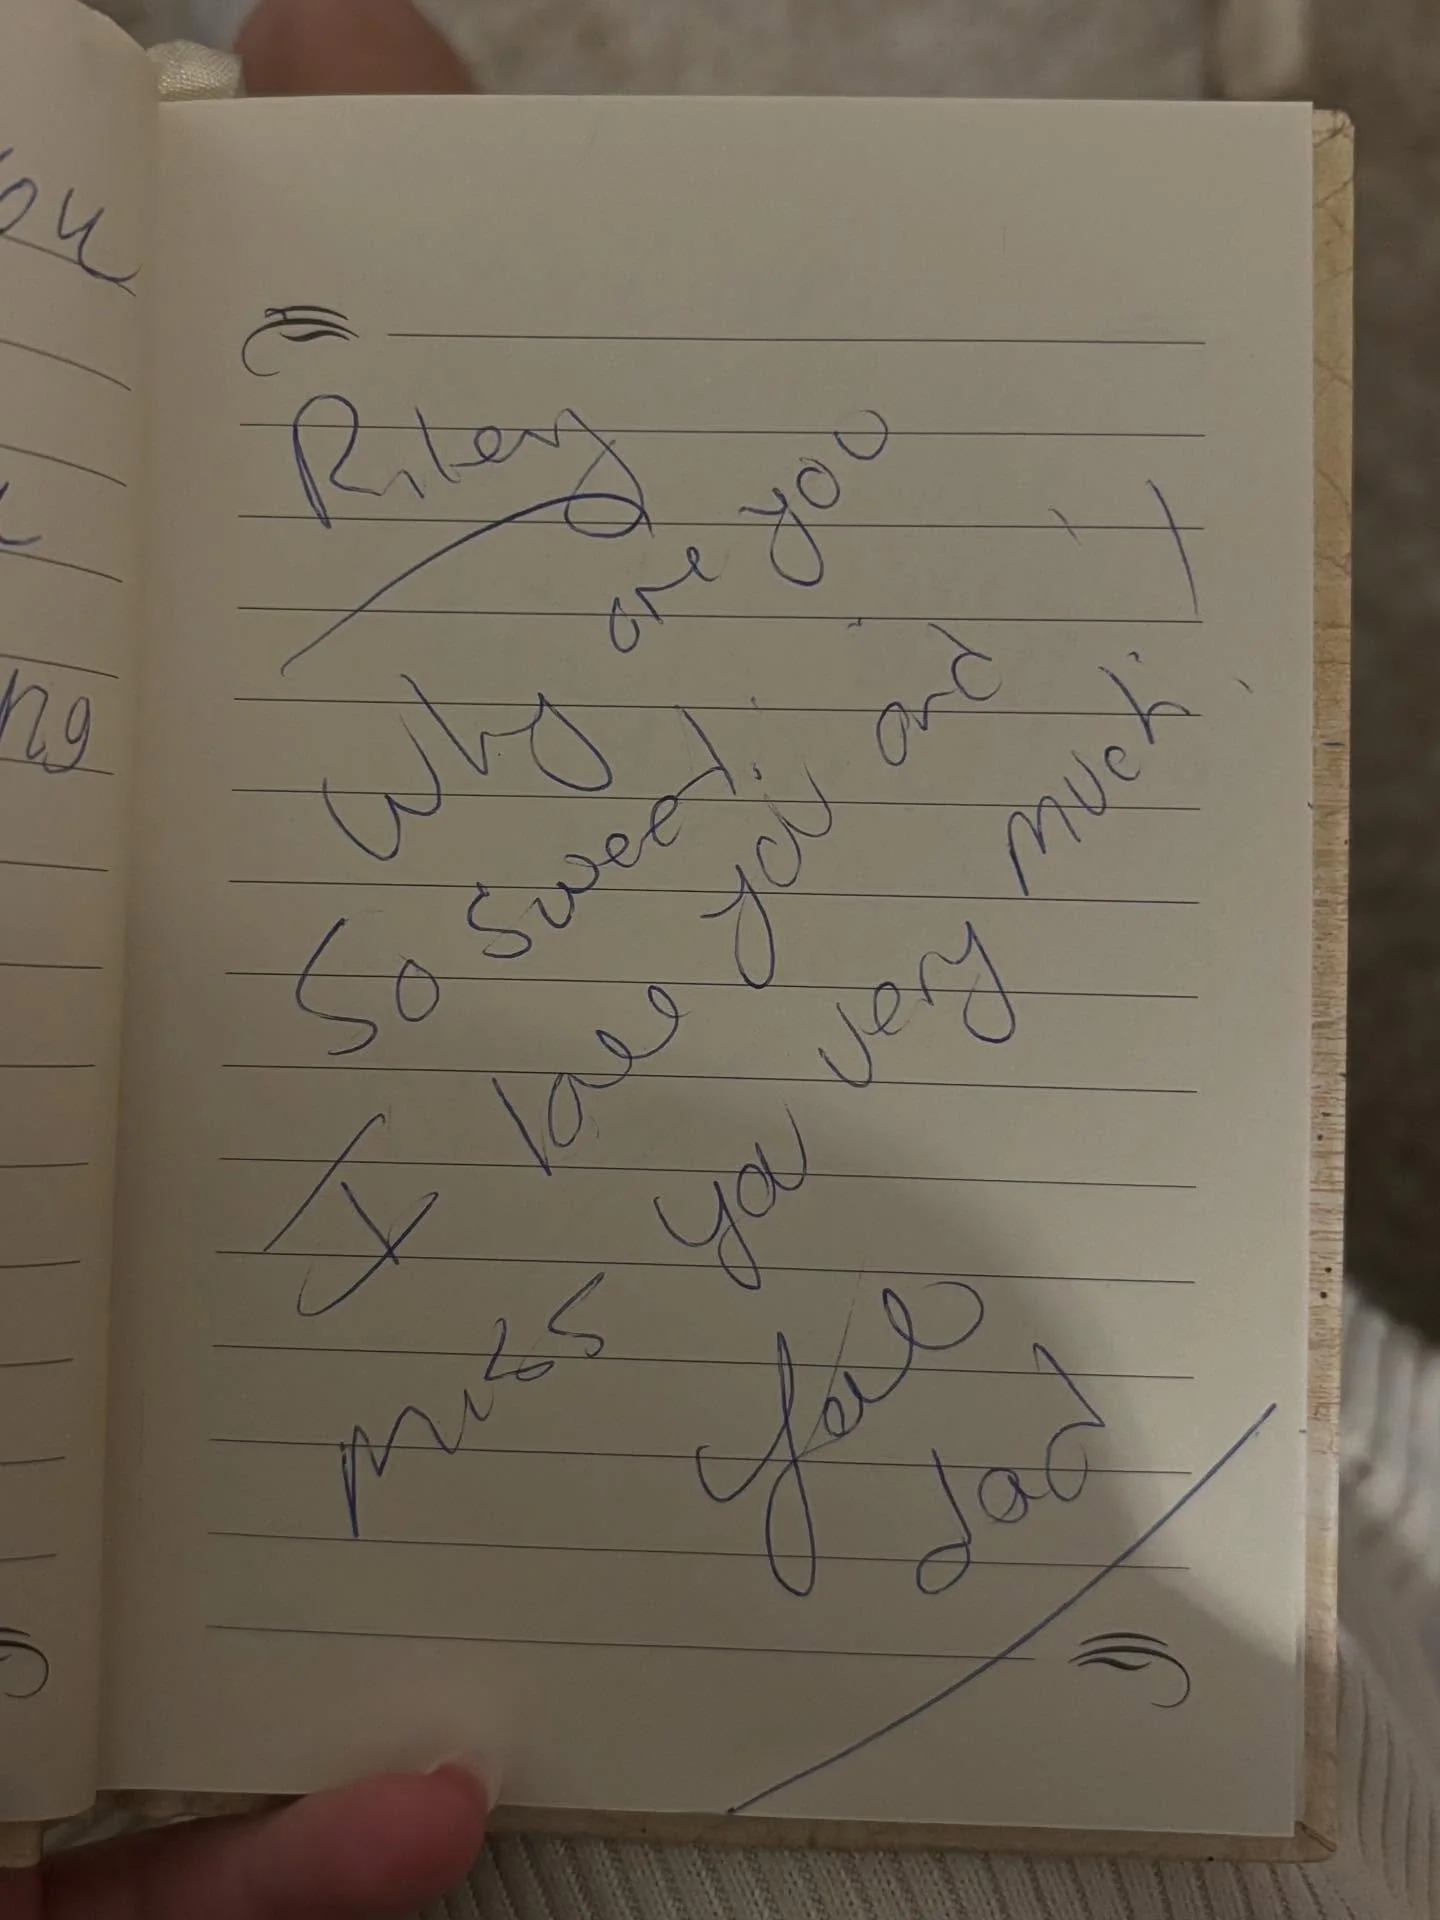 ou
ng
Riley
Why are you
so sweet.
I love you and
miss you very much.
dad